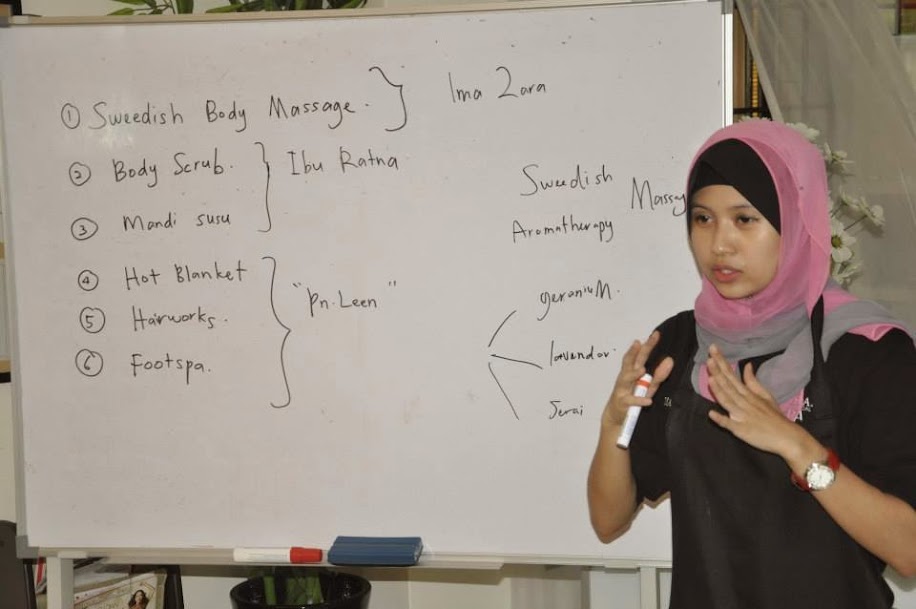 ① Sweedish Body Massage.
Ima Zara
② Body Scrub.
Ibu Ratna
③ Mandi susu
④ Hot Blanket
⑤ Hairworks.
"Pn. Leen"
⑥ Footspa.
Swedish
Massg
Aromatherapy
geranium.
lavendor.
Serai